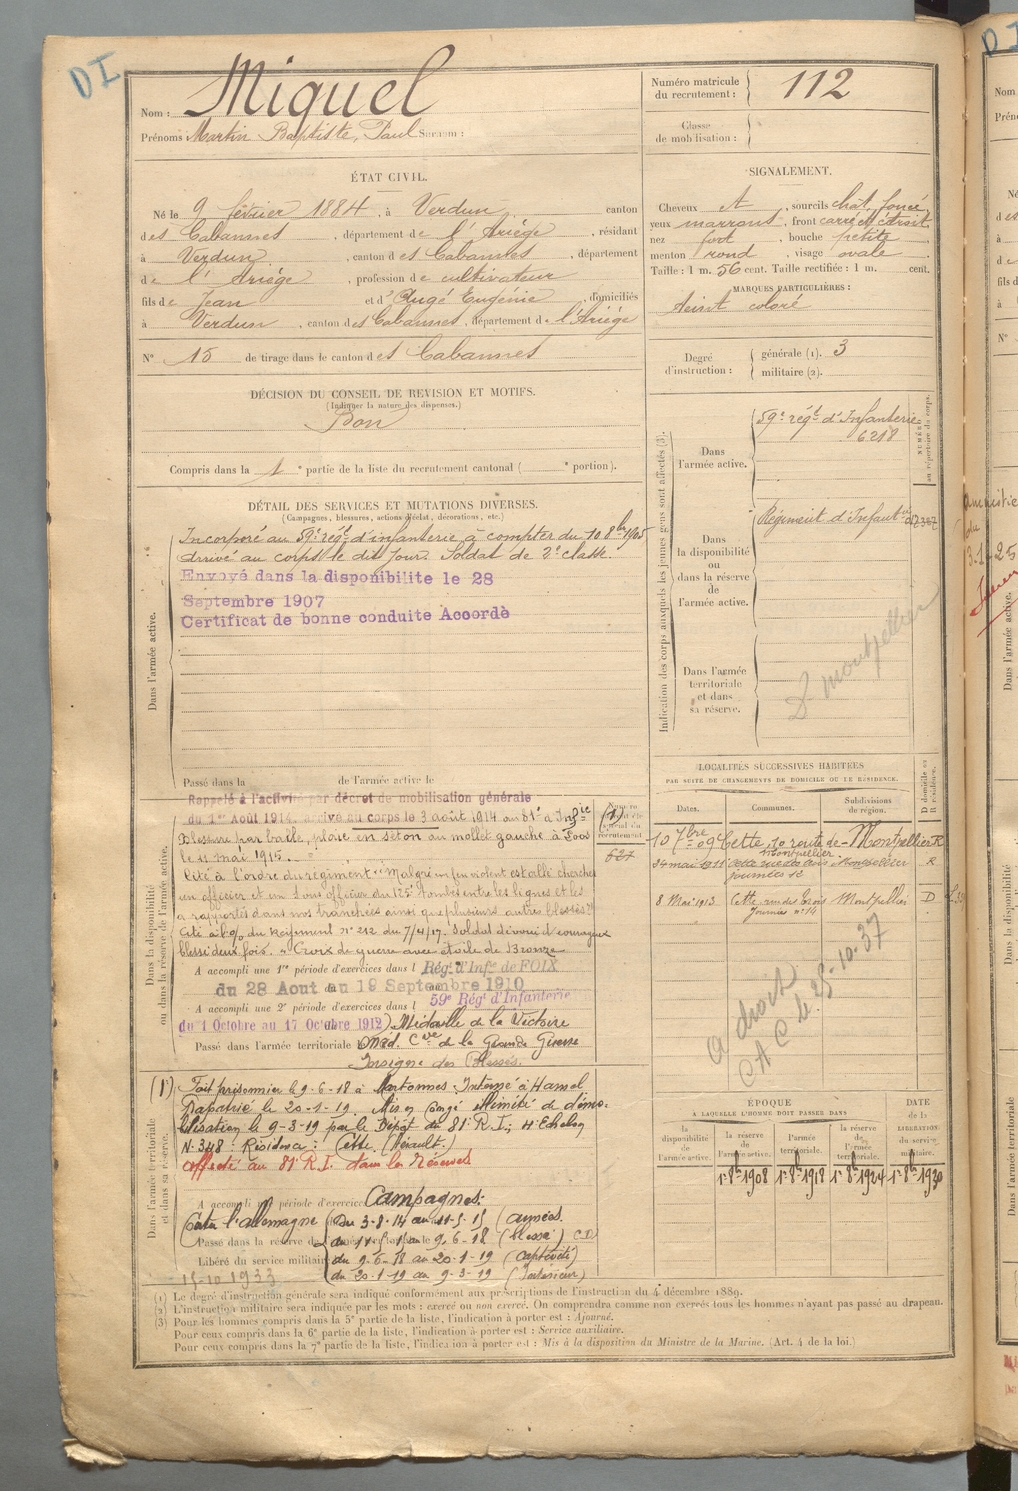 DI
Nom : Miquel
Prénoms : Martin Baptiste, Paul Surnom :
Numéro matricule du recrutement : 112
Classe de mobilisation :
ÉTAT CIVIL.
Né le 9 février 1884, à Verdun, canton
des Cabannes, département de l'Ariège, résidant
à Verdun, canton des Cabannes, département
de l'Ariège, profession de cultivateur
fils de Jean et d'Augé Eugénie, domiciliés
à Verdun, canton des Cabannes, département de l'Ariège
N° 15 de tirage dans le canton des Cabannes
SIGNALEMENT.
Cheveux et, sourcils chat. foncé
yeux marrons, front carré et étroit,
nez fort, bouche petite,
menton rond, visage ovale
Taille : 1 m. 56 cent. Taille rectifiée : 1 m. cent.
MARQUES PARTICULIÈRES :
teint coloré
Degré d'instruction : générale (1). 3
militaire (2).
DÉCISION DU CONSEIL DE REVISION ET MOTIFS.
(Indiquer la nature des dispenses.)
Bon
Compris dans la 1e partie de la liste du recrutement cantonal ( e portion).
DÉTAIL DES SERVICES ET MUTATIONS DIVERSES.
(Campagnes, blessures, actions d'éclat, décorations, etc.)
Dans l'armée active.
Incorporé au 59e régt d'infanterie à compter du 10 8bre 1905
arrivé au corps le dit jour. Soldat de 2e classe.
Envoyé dans la disponibilite le 28
Septembre 1907
Certificat de bonne conduite Accordè
Passé dans la de l'armée active le
Dans la disponibilité ou dans la réserve de l'armée active.
Rappelé à l'activité par décret de mobilisation générale
du 1er Août 1914. arrivé au corps le 3 août 1914 au 81e d'Infrie
Blessure par balle, plaie en séton au mollet gauche à
le 11 mai 1915.
Cité à l'ordre du régiment : "Malgré un feu violent est allé chercher
un officier et un sous officier du 125e tombés entre les lignes et les
a rapportés dans nos tranchées ainsi que plusieurs autres blessés"
Cité à l'o/ du Régiment n° 212 du 7/4/17. Soldat dévoué et courageux
blessé deux fois. - Croix de guerre avec étoile de Bronze
A accompli une 1re période d'exercices dans l Rég. d'Infie de FOIX
du 28 Aout au 19 Septembre 1910
A accompli une 2e période d'exercices dans l 59e Régt d'Infanterie
du 1 Octobre au 17 Octobre 1912 Médaille de la Victoire
Passé dans l'armée territoriale Méd. Cve de la Grande Guerre
Insigne des Blessés.
Numéro au recrutement
627
Dans l'armée territoriale et dans sa réserve.
(1) Fait prisonnier le 9-6-18 à. Interné à Hamel
Rapatrié le 20-1-19. Mis en congé illimité de démo-
bilisation le 9-3-19 par le Dépôt du 81e R.I., 4e Echelon
N° 348. Résidence : Cette (Hérault.)
affecté au 81e R.I. dans les Réserves
A accompli période d'exercices Campagnes :
Contre l'allemagne du 3-8-14 au 11-5-15 (armées.
Passé dans la réserve de au 9-6-18 (blessé) C.D
Libéré du service militaire du 9-6-18 au 20-1-19 (captivité)
15-10 1933 du 20-1-19 au 9-3-19 (Intérieur)
Indication des corps auxquels les jeunes gens sont affectés (3).
Dans l'armée active. 59e régt d'Infanterie
6218
NUMÉRO au répertoire du corps.
Dans la disponibilité ou dans la réserve de l'armée active.
Régiment d'Infantie
Dans l'armée territoriale et dans sa réserve.
D. Montpellier
LOCALITÉS SUCCESSIVES HABITÉES
PAR SUITE DE CHANGEMENTS DE DOMICILE OU DE RÉSIDENCE.
Dates. Communes. Subdivisions de région. D domicile ou R résidence.
10 7bre 09 Cette, 10 route de Montpellier Montpellier R
24 mai 1911 Cette rue des trois journées 12 Montpellier R
8 Mai 1913 Cette rue des Trois journées n° 14 Montpellier D
a droit
CAC le 25-10-37
ÉPOQUE
A LAQUELLE L'HOMME DOIT PASSER DANS
DATE de la LIBÉRATION du service militaire.
la disponibilité de l'armée active. la réserve de l'armée active. l'armée territoriale. la réserve de l'armée territoriale.
1r 8bre 1908 1r 8bre 1918 1r 8bre 1924 1r 8bre 1930
(1) Le degré d'instruction générale sera indiqué conformément aux prescriptions de l'instruction du 4 décembre 1889.
(2) L'instruction militaire sera indiquée par les mots : exercé ou non exercé. On comprendra comme non exercés tous les hommes n'ayant pas passé au drapeau.
(3) Pour les hommes compris dans la 5e partie de la liste, l'indication à porter est : Ajourné.
Pour ceux compris dans la 6e partie de la liste, l'indication à porter est : Service auxiliaire.
Pour ceux compris dans la 7e partie de la liste, l'indication à porter est : Mis à la disposition du Ministre de la Marine. (Art. 4 de la loi.)